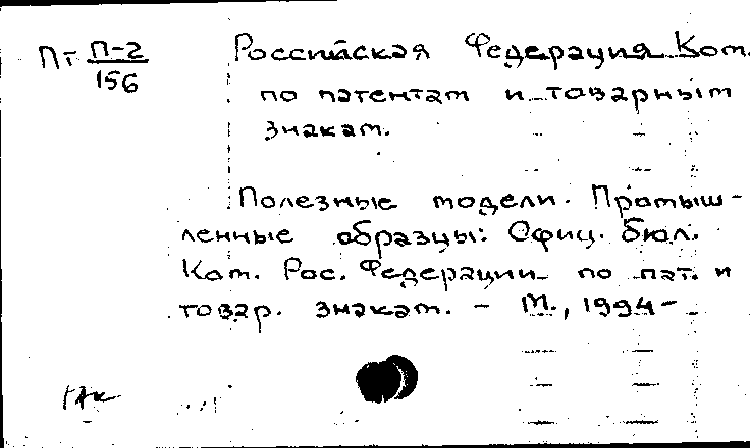 Пт П-2 Российская Федерация. Ком.
156
по патентам и товарным
знакам.
Полезные модели. Промыш-
ленные образцы: Офиц. бюл.
Ком. Рос. Федерации по пат. и
товар. знакам. - М., 1994-